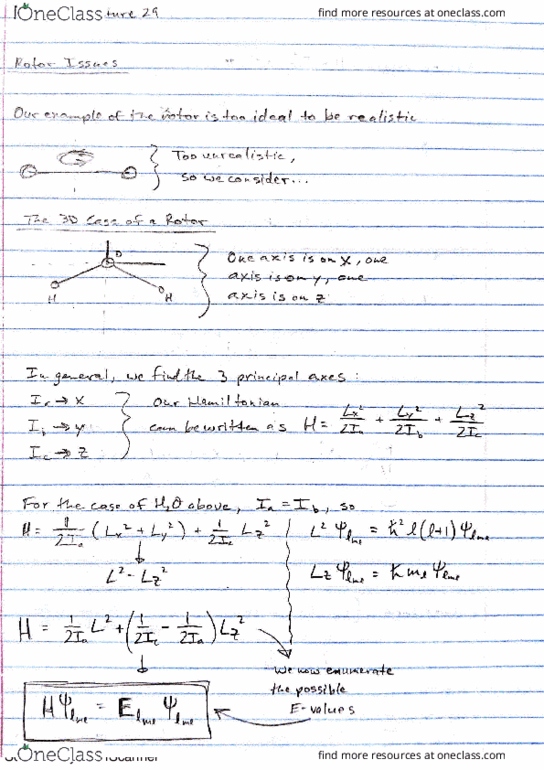 OneClass ture 29 find more resources at oneclass.com
Rotor Issues
Our example of the rotor is too ideal to be realistic
Too unrealistic,
so we consider...
The 3D Case of a Rotor
O
H
H
One axis is on x, one
axis is on y, one
axis is on z
In general, we find the 3 principal axes:
→ x
→ y
I_c → z
Our Hamiltonian
can be written as H = Lx²/2I_a + Ly²/2I_b + Lz²/2I_c
For the case of H₂O above, I_a = I_b, so
H = 1/2I_a (Lx² + Ly²) + 1/2I_c Lz²
L² - Lz²
L² Ψ_lme = ħ² l(l+1) Ψ_lme
Lz Ψ_lme = ħ me Ψ_lme
H = 1/2I_a L² + (1/2I_c - 1/2I_a) Lz²
We now enumerate
the possible
E-values
HΨ_lme = E_lme Ψ_lme
OneClass Scanner find more resources at oneclass.com